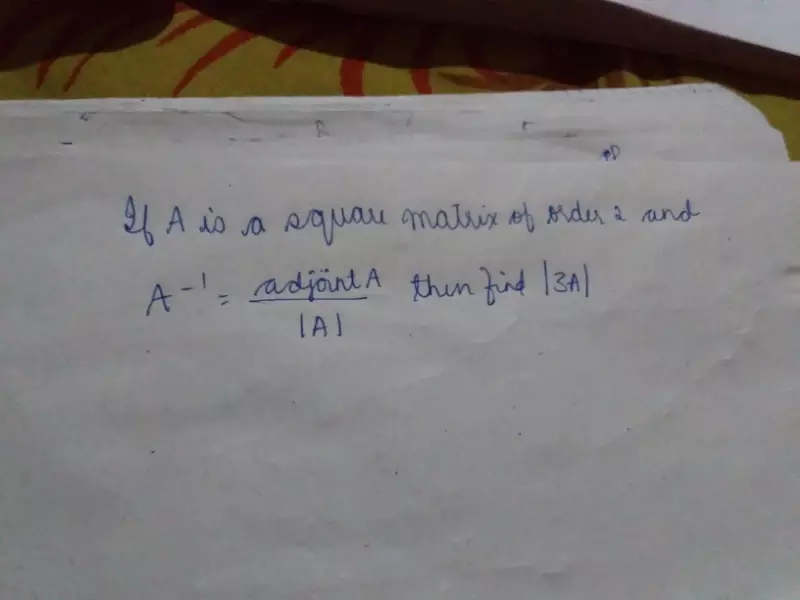 If A is a square matrix of order 2 and
A⁻¹ = adjoint A / |A| then find |3A|